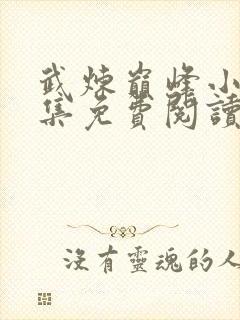 武煉巔峰小
集免費閱讀
沒有靈魂的人